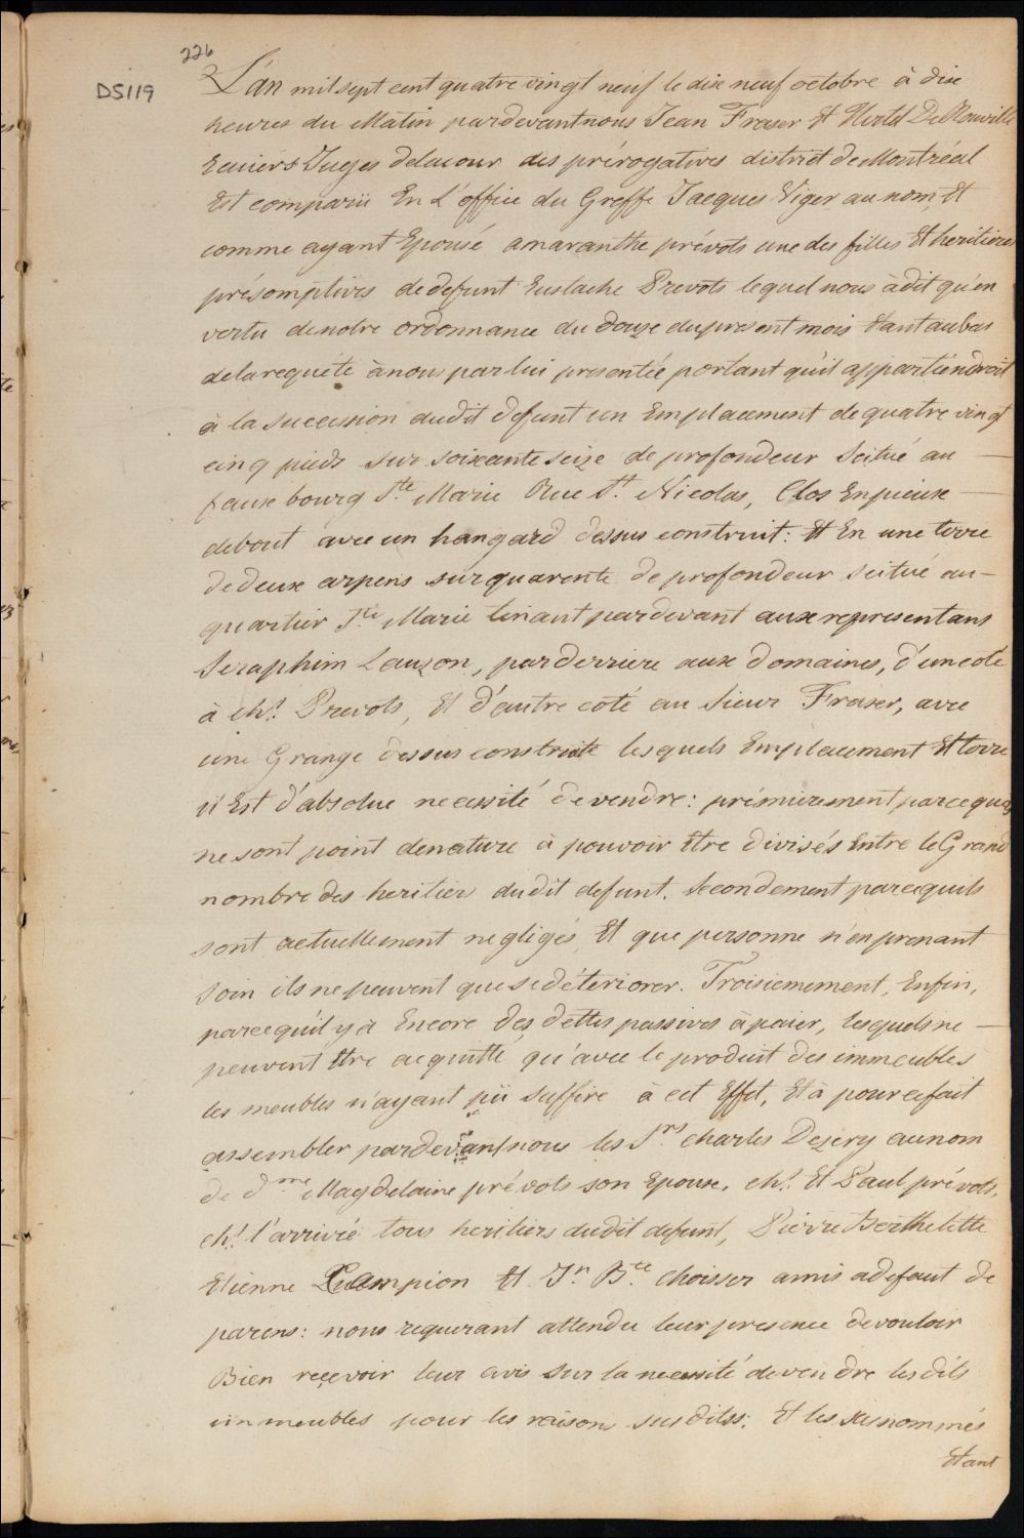 226
DS119
L'án mil sept cent quatre vingt neuf le dix neuf octobre à dix
heures du Matin pardevant nous Jean Fraser Et Hertel De Rouville
Ecuiers Juges delacour des prérogatives district de Montréal
Est comparüe En L'office du Greffe Jacques Viger au nom, Et
comme ayant Epousé amaranthe prévots une des filles Et heritieres
présomptives de defunt Eustache Prevots lequel nous à dit qu'en
vertu denotre ordonnance du douze du present mois Etant au bas
dela requéte à nous par lui presentée portant qu'il appartiendroit
à la sucession dudit defunt un Emplacement de quatre vingt
cinq pieds sur soixante seize de profondeur Scitué au
faux bourg Ste Marie Rue St Nicolas, Clos En pieux
debout avec un hangard dessus construit: Et En une terre
de deux arpens sur quarente de profondeur scitué au
quartier Ste Marie tinant pardevant aux representans
Seraphim Lauzon, par derriere aux domaines, d'un coté
à chs Prevots, Et d'autre coté au Sieur Fraser, avec
une Grange dessus construite lesquels Emplacement Et terre
il Est d'absolue necessité de vendre: prémierement parcequils
ne sont point denature à pouvoir Etre divisés Entre le Grand
nombre des heritier dudit defunt. Secondement parcequils
sont actuellement negligés Et que personne n'en prenant
soin ils ne peuvent que se déteriorer. Troisiemement, Enfin,
parcequ'il y à Encore des dettes passives à paier, lesquels ne
peuvent Etre acquitté qu'avec le produit des immeubles
les meubles n'ayant pü suffire à cet Effet, Et à pour ce fait
assembler pardevant nous les Srs charles Dezery au nom
de dme Magdelaine prévots son Epouse, chs Et Paul prévots,
chs l'arrivée tous heritiers dudit defunt, Pierre Berthelette
Etienne Campion Et Jn Bte Choisser amis adefaut de
parens: nous requerant attendu leur presence devouloir
Bien reçevoir leur avis sur la necessité de vendre les dits
immeubles pour les raisons susdites: Et les susnommés
Etant